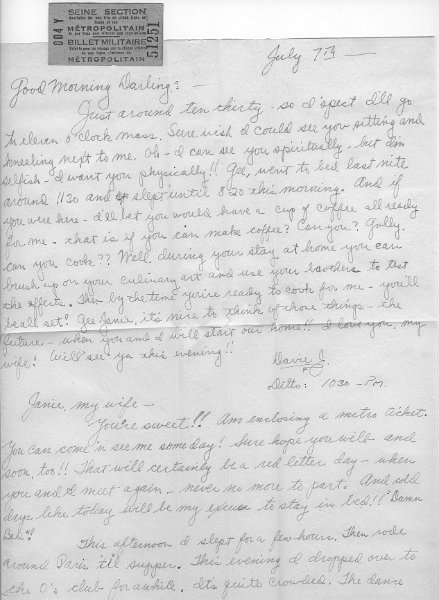 SEINE SECTION
MÉTROPOLITAIN
BILLET MILITAIRE
MÉTROPOLITAIN
004 Y
51251
July 7th —
Good Morning Darling: —
Just around ten thirty - so I 'spect I'll go
to eleven o'clock mass. Sure wish I could see you sitting and
kneeling next to me. Oh - I can see you spiritually - but I'm
selfish - I want you physically!! Gee, went to bed last nite
around 1130 and slept until 820 this morning. And if
you were here - I'll bet you would have a cup of coffee all ready
for me - that is if you can make coffee? Can you? Golly
can you cook?? Well, during your stay at home you can
brush up on your culinary art and use your to test
the effects. Then by the time you're ready to cook for me - you'll
be all set! Gee Janie, it's nice to think of those things - the
future - when you and I will start our home!! I love you, my
wife! Will see ya this evening!!
Davie J.
Ditto: 1030 - Pm.
Janie, my wife —
You're sweet!! Am enclosing a metro ticket.
You can come 'n see me some day! Sure hope you will - and
soon, too!! That will certainly be a red letter day - when
you and I meet again - never no more to part. And cold
days like today will be my excuse to stay in bed!! "Damn
This afternoon I slept for a few hours. Then rode
around Paris til supper. This evening I dropped over to
the O's club for awhile. It's quite crowded. The dance